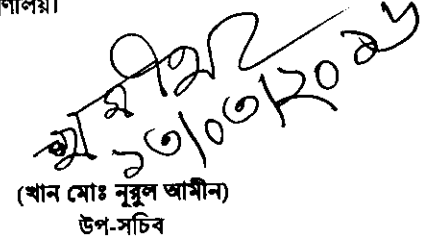 ণালয়।
১৩/০৩/২০১৬
(খান মোঃ নূরুল আমীন)
উপ-সচিব